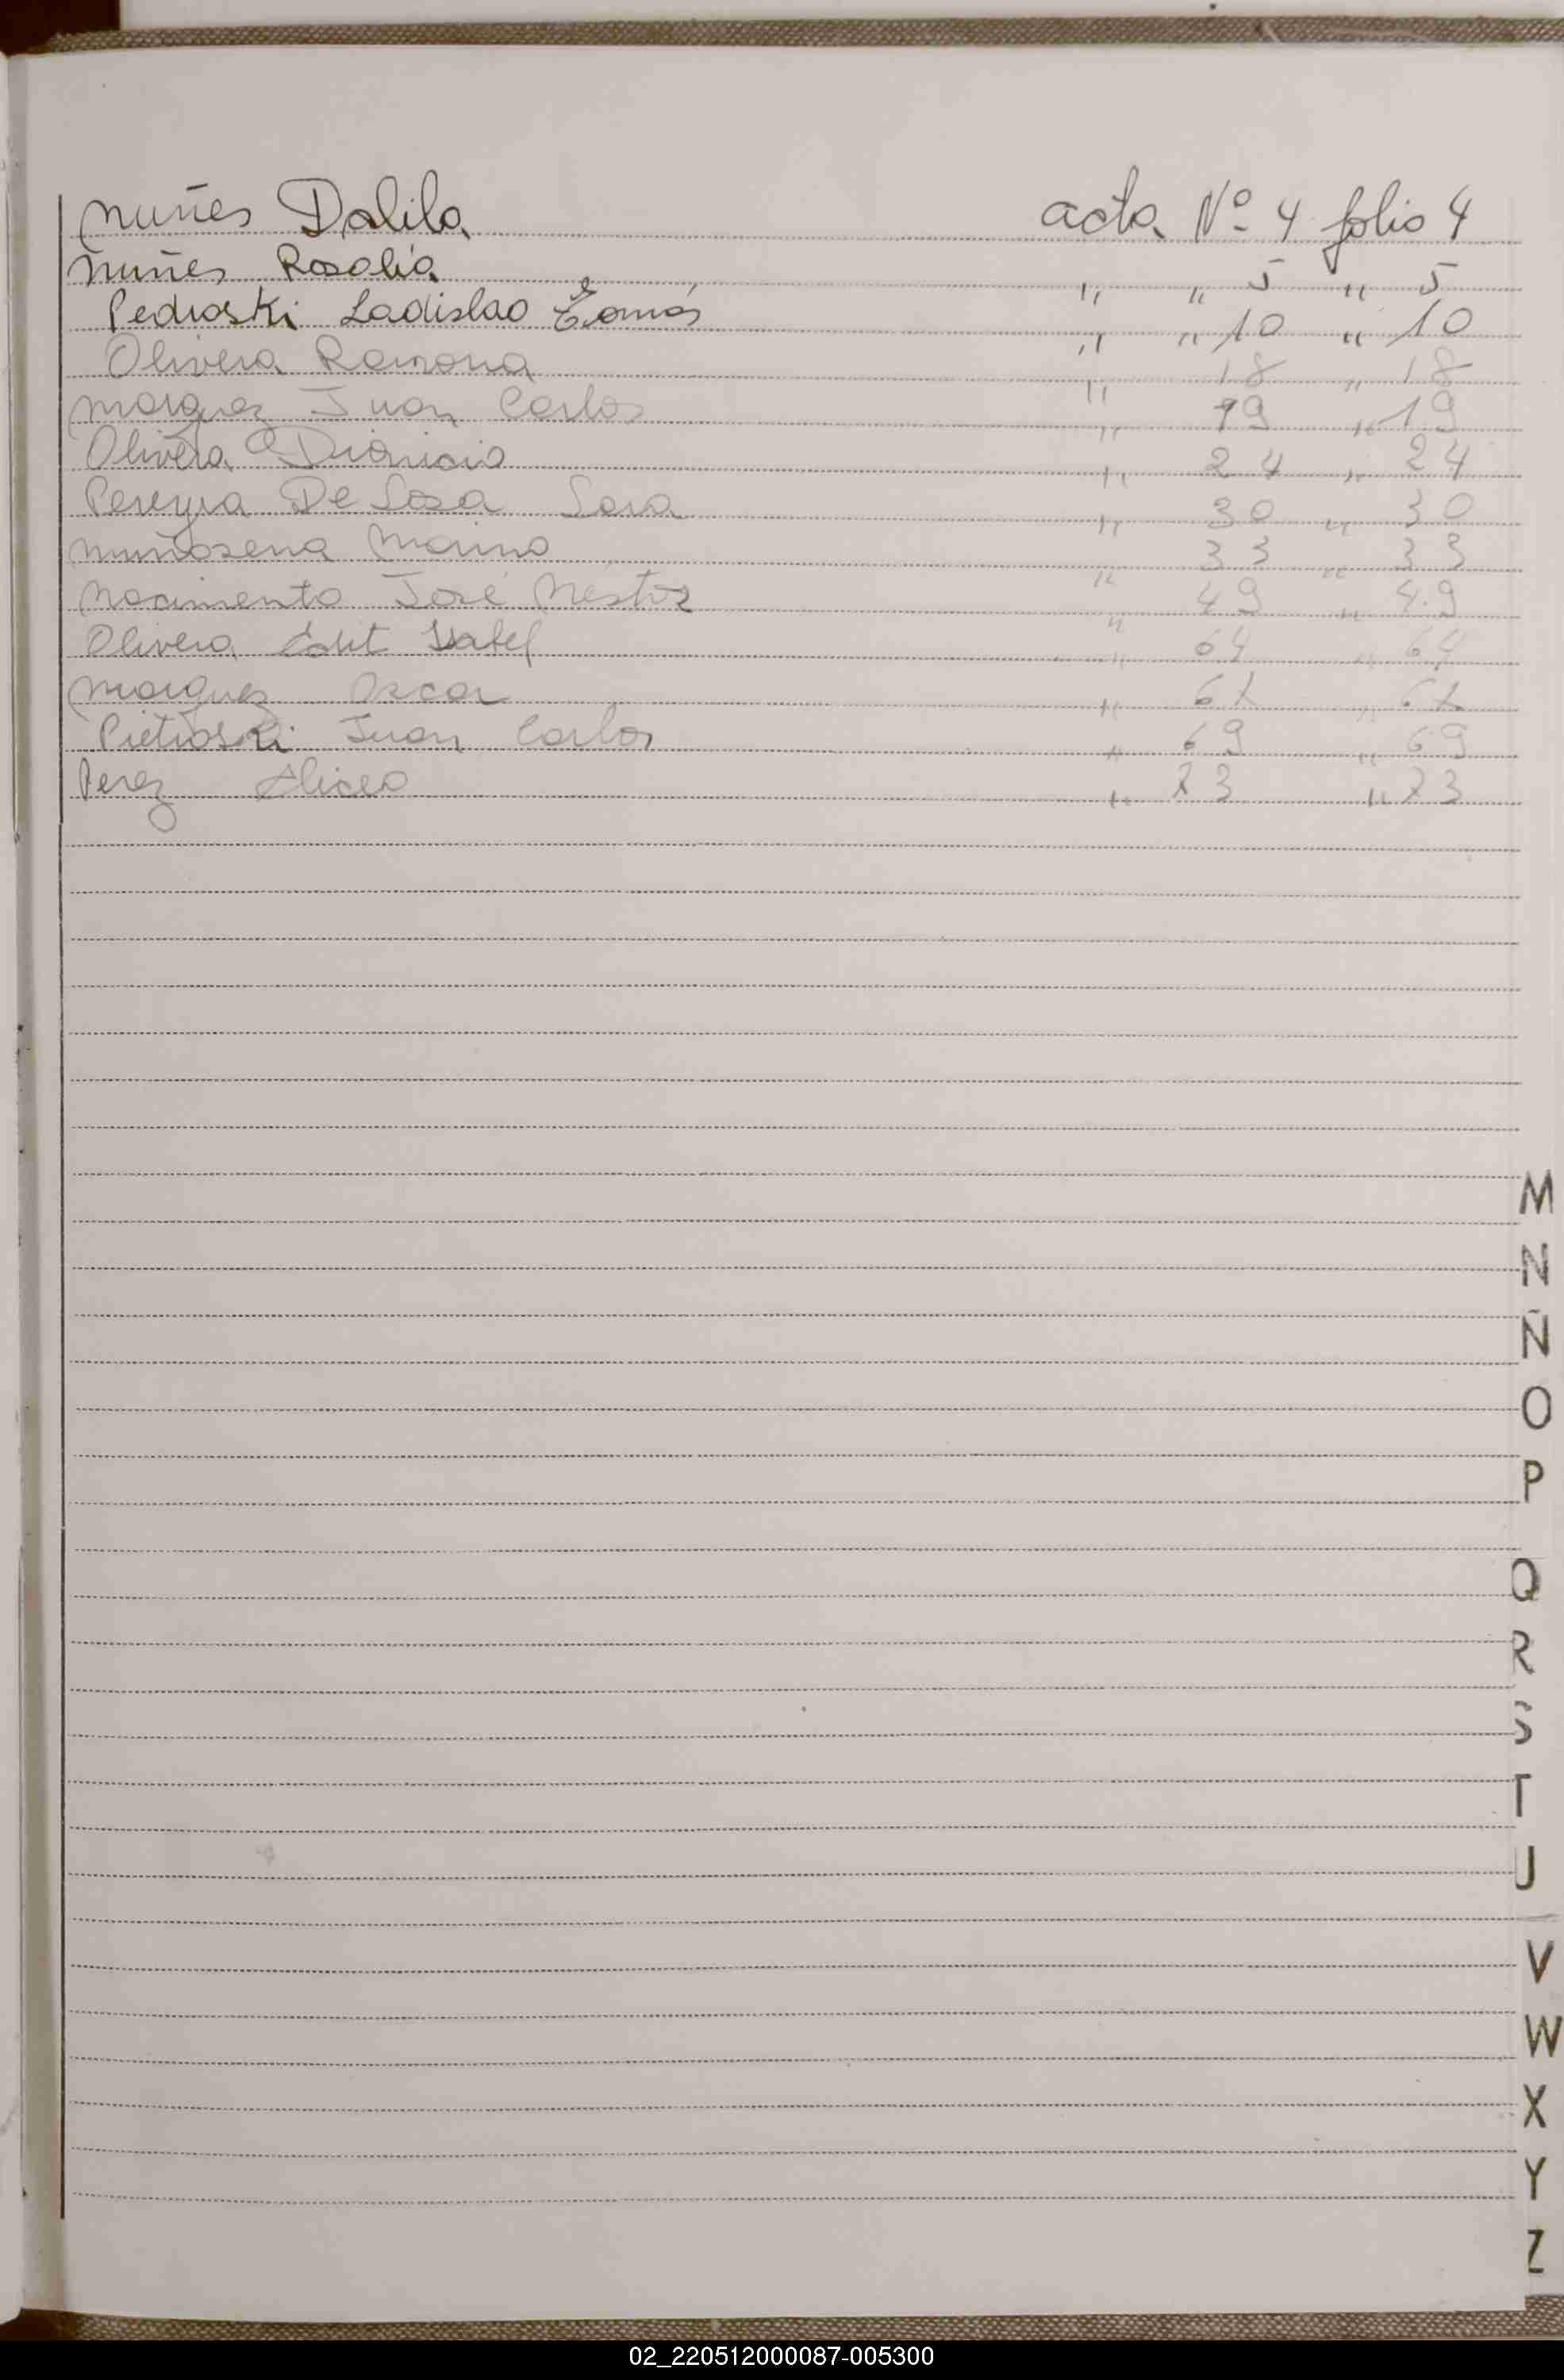 Nuñes Dalila acta Nº 4 folio 4
Nuñes Rosalia " " 5 " 5
Pedroski Ladislao Tomás " " 10 " 10
Olivera Ramona " 18 " 18
Marquez Juan Carlos " 19 " 19
Olivera Dionicio " 24 " 24
Pereyra De Sosa Sara " 30 " 30
Marino " 33 " 33
Nacimento José Néstor " 49 " 49
Olivera Edit Isabel " 64 " 64
Marquez Oscar " 67 " 67
Pietroski Juan Carlos " 69 " 69
Perez Eliceo " 73 " 73
M
N
Ñ
O
P
Q
R
S
T
U
V
W
X
Y
Z
02_220512000087-005300